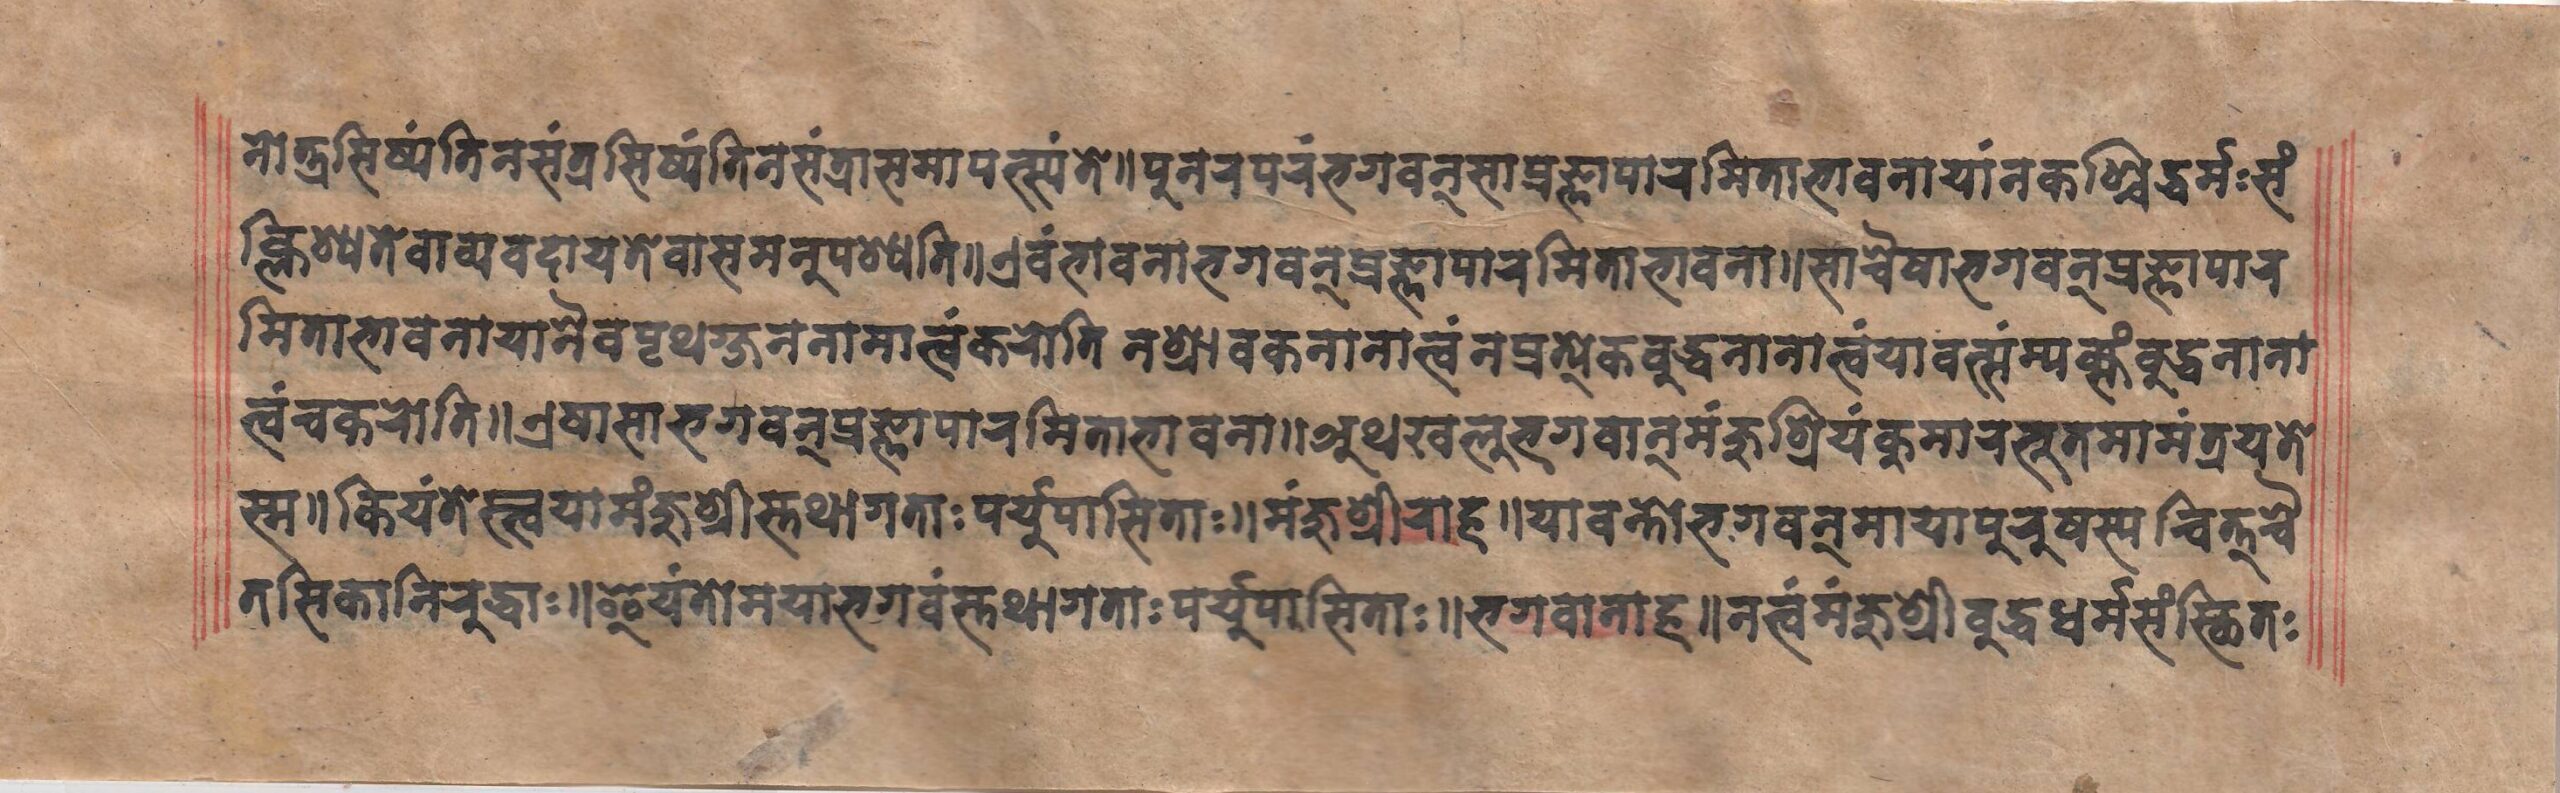 नोत्त्रसिष्यंतिनसंत्रसिष्यंतिनसंत्रासमापत्स्यंते॥पुनरपरंभगवन्साप्रज्ञापारमिताभावनायांनकश्चिद्धर्मःसं
क्लिश्यतेवाव्यवदायतेवासमनुपश्यति॥एवंभावनाभगवन्प्रज्ञापारमिताभावना॥साचैषाभगवन्प्रज्ञापार
मिताभावनायानैवपृथग्जननामात्वंकरोति नश्रावकनानात्वंनप्रत्येकबुद्धनानात्वंयावत्संम्यक्संबुद्धनाना
त्वंचकरोति॥एषासाभगवन्प्रज्ञापारमिताभावना॥अथखलुभगवान्मंजुश्रियंकुमारभूतमामंत्रयते
स्म॥कियंतेस्त्वयामंजुश्रीस्तथागताःपर्युपासिताः॥मंजुश्रीराह॥यावन्तोभगवन्मायापुरुषस्यचित्त्चै
तसिकानिरुद्धाः॥इयंतोमयाभगवंस्तथागताःपर्युपासिताः॥भगवानाह॥नत्वंमंजुश्रीबुद्धधर्मसंस्थितः